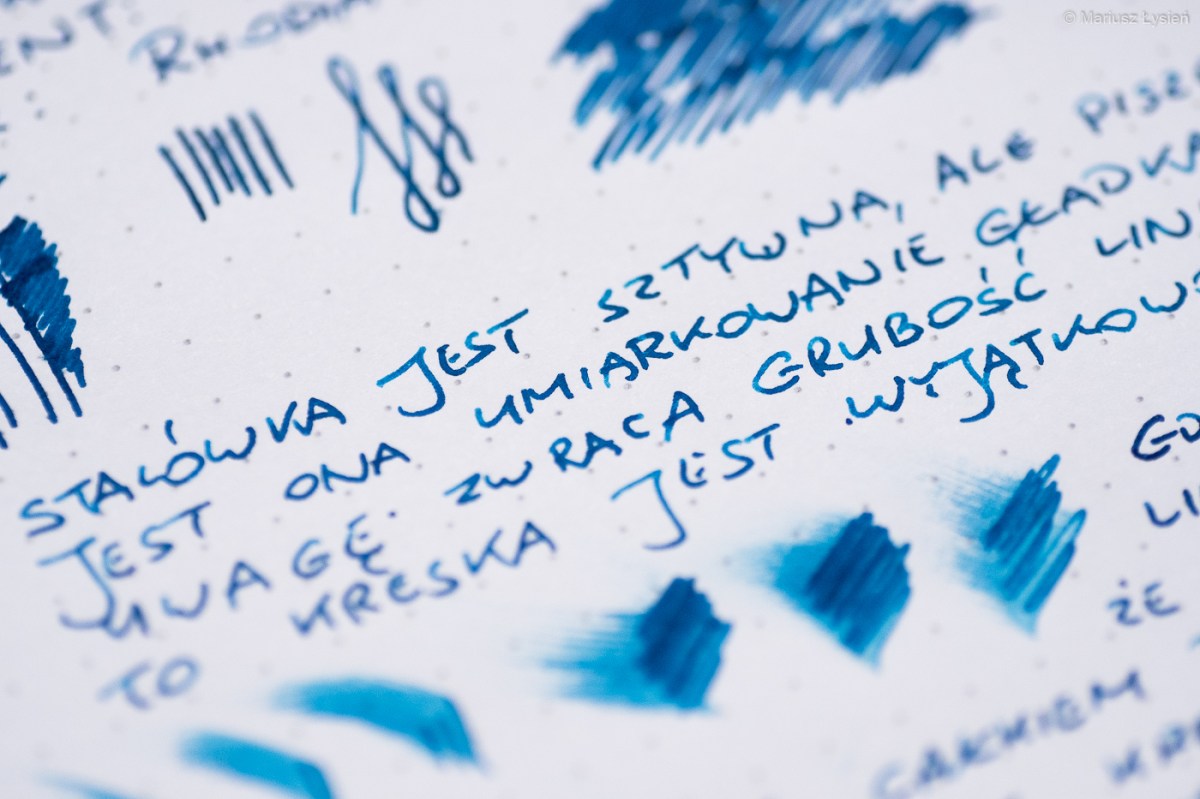 © Mariusz Łysień
RHODIA
STALÓWKA JEST SZTYWNA, ALE
JEST ONA UMIARKOWANIE GŁADKA
UWAGĘ. ZWRACA GRUBOŚĆ LIN
TO KRESKA JEST WYJĄTKOWO
ŻE
CAŁKIEM